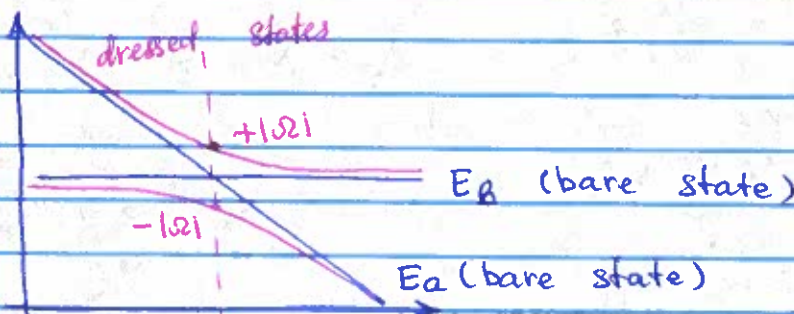 dressed states
+|Ω|
E_B (bare state)
-|Ω|
E_a (bare state)